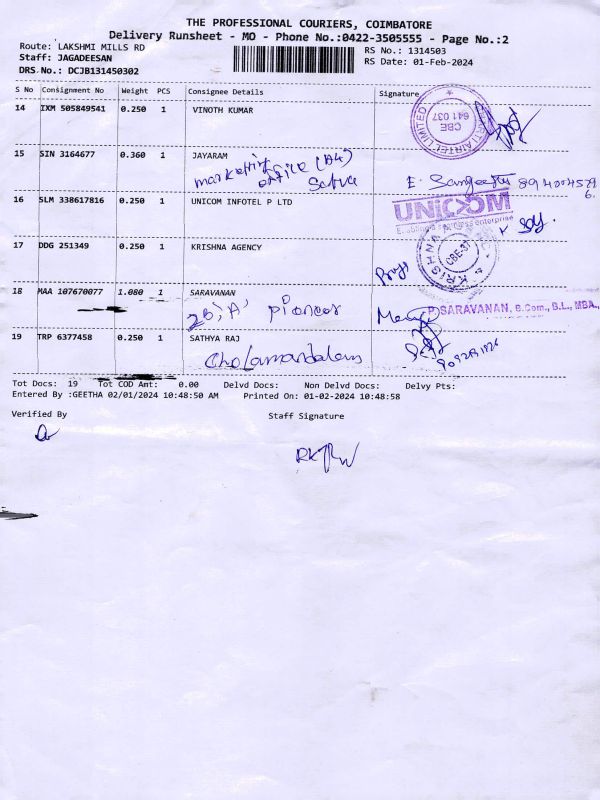 THE PROFESSIONAL COURIERS, COIMBATORE
Delivery Runsheet - MO - Phone No.:0422-3505555 - Page No.:2
Route: LAKSHMI MILLS RD
RS No.: 1314503
Staff: JAGADEESAN
RS Date: 01-Feb-2024
DRS No.: DCJB131450302
S No Consignment No Weight PCS Consignee Details Signature
14 IXM 505849541 0.250 1 VINOTH KUMAR
AIRTEL LIMITED
CBE
641 037
15 SIN 3164677 0.360 1 JAYARAM
marketing office (B4)
E. Sangeetha
16 SLM 338617816 0.250 1 UNICOM INFOTEL P LTD
UNICOM
17 DDG 251349 0.250 1 KRISHNA AGENCY
KRISHNA
CBE-37
18 MAA 107670077 1.080 1 SARAVANAN
26, 'A' pioneer
P.SARAVANAN, B.Com., B.L., MBA.,
19 TRP 6377458 0.250 1 SATHYA RAJ
Cholamandalam
Tot Docs: 19 Tot COD Amt: 0.00 Delvd Docs: Non Delvd Docs: Delvy Pts:
Entered By :GEETHA 02/01/2024 10:48:50 AM Printed On: 01-02-2024 10:48:58
Verified By Staff Signature